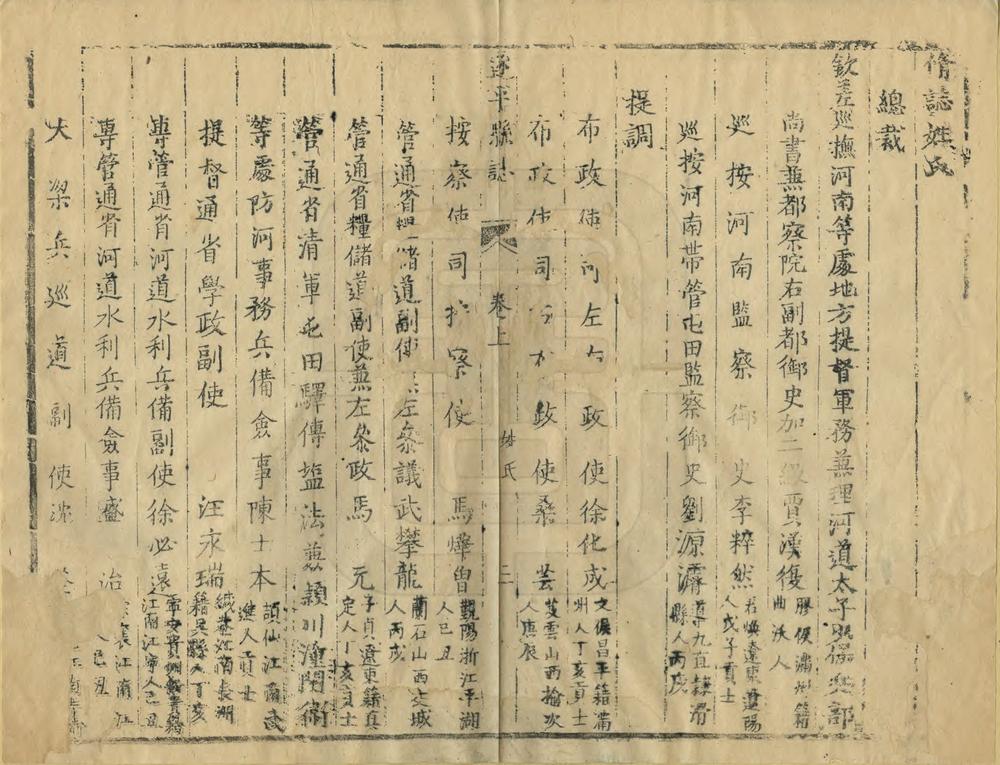 脩誌姓氏
總裁
欽差巡撫河南等處地方提督軍務兼理河道太子少保兵部
尚書兼都察院右副都御史加二級賈漢復膠侯肅州籍曲沃人
巡按河南監察御史李粹然遼東遼陽人戊子貢士
巡按河南帶管屯田監察御史劉源濬導九直隸滑縣人丙戌
提調
布政使司左布政使徐化成文侯昌平籍滿州人丁亥貢士
布政使司右布政使桑芸菱雲山西榆次人庚辰
遂平縣誌 卷上 姓氏 二
按察使司按察使馬燁曾覲陽浙江平湖人己丑
管通省糧儲道副使兼左參議武攀龍蘭石山西交城人丙戌
管通省糧儲道副使兼左參政馬元子貞遼東籍真定人丁亥貢士
管通省清軍屯田驛傳盐法兼潁川潼關衛
等處防河事務兵備僉事陳士本頡仙江南進人貢士
提督通省學政副使汪永瑞緘菴江南長洲籍吳縣人丁亥
專管通省河道水利兵備副使徐必遠寧安貴州籍江南江寧人己丑
專管通省河道水利兵備僉事盛治江南江人己丑
大梁兵巡道副使沈